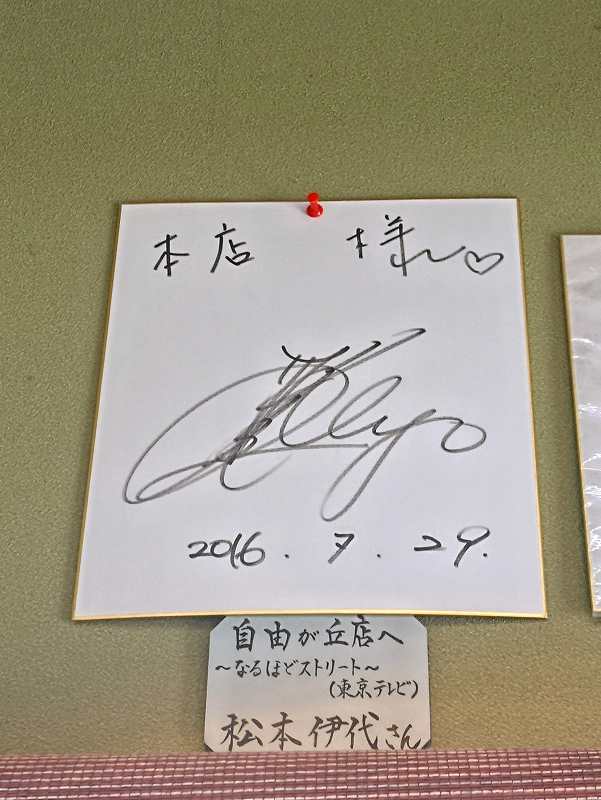 本店　様♡
2016.7.29.
自由が丘店へ
～なるほどストリート～
(東京テレビ)
松本伊代さん